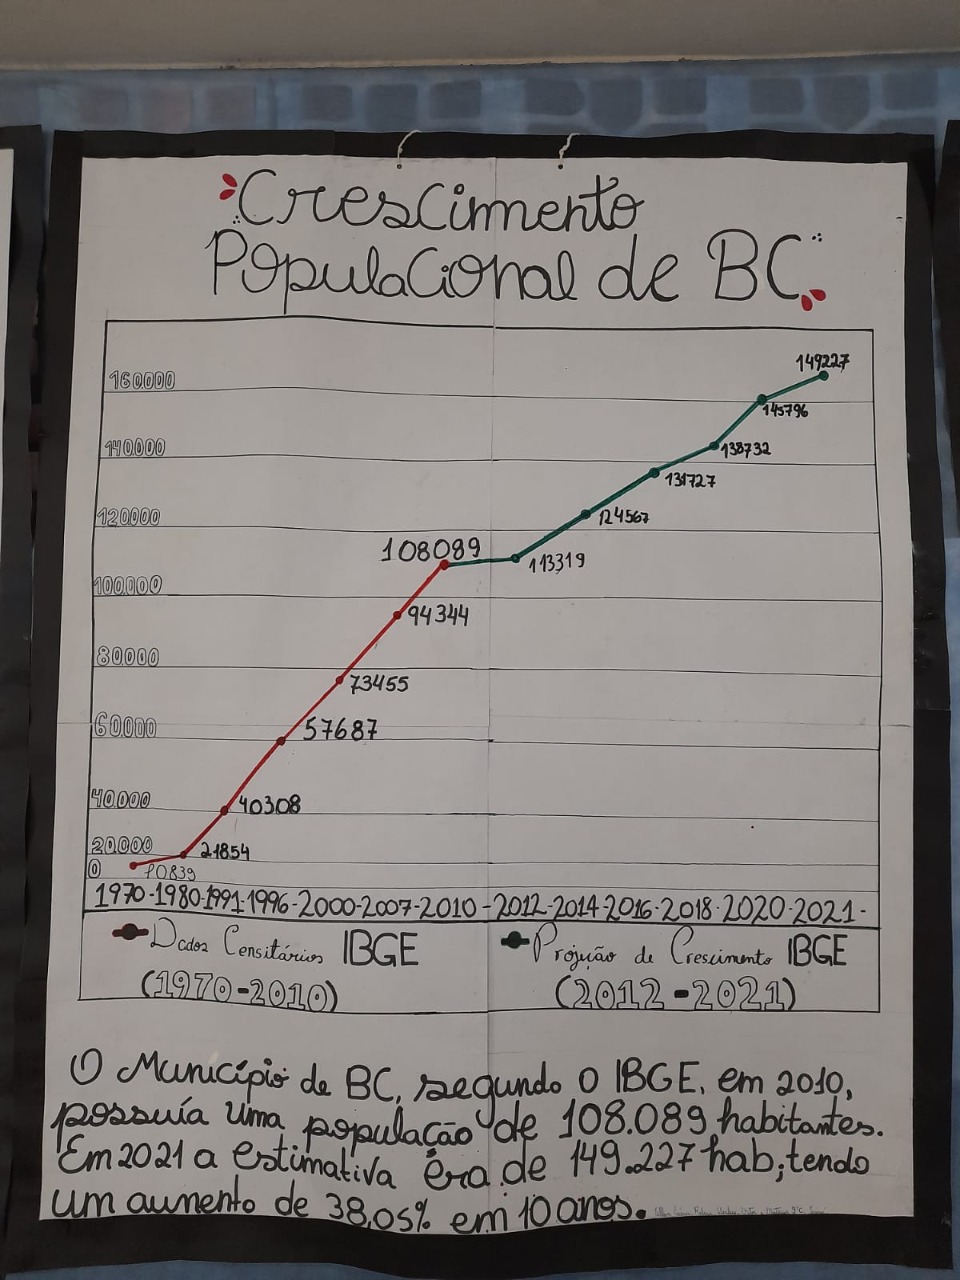 Crescimento
Populacional de BC
160000
149227
145796
140000
138732
131727
120000
124567
108089
113319
100.000
94344
80000
73455
60000
57687
40.000
40308
20.000
21854
0
10839
1970-1980-1991-1996-2000-2007-2010-2012-2014-2016-2018-2020-2021-
Dados Censitários IBGE
(1970-2010)
Projução de Crescimento IBGE
(2012-2021)
O Município de BC, segundo o IBGE, em 2010,
possuía uma população de 108.089 habitantes.
Em 2021 a estimativa era de 149.227 hab, tendo
um aumento de 38,05% em 10 anos.